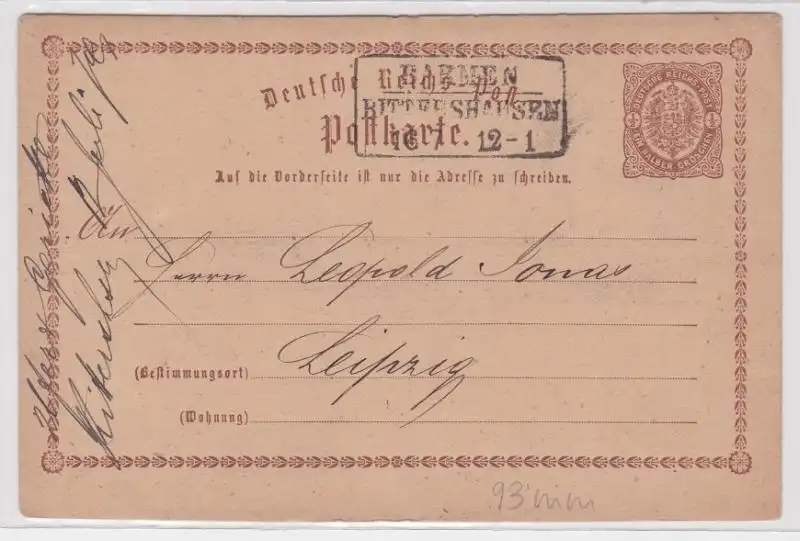 Deutsche Reichs-Post
Postkarte.
BARMEN
RITTERSHAUSEN
16 7 12-1
DEUTSCHE REICHS-POST
½ ½
EIN HALBER GROSCHEN
Auf die Vorderseite ist nur die Adresse zu schreiben.
An
Herrn Leopold Jonas
Leipzig
(Bestimmungsort)
(Wohnung)
93 mm